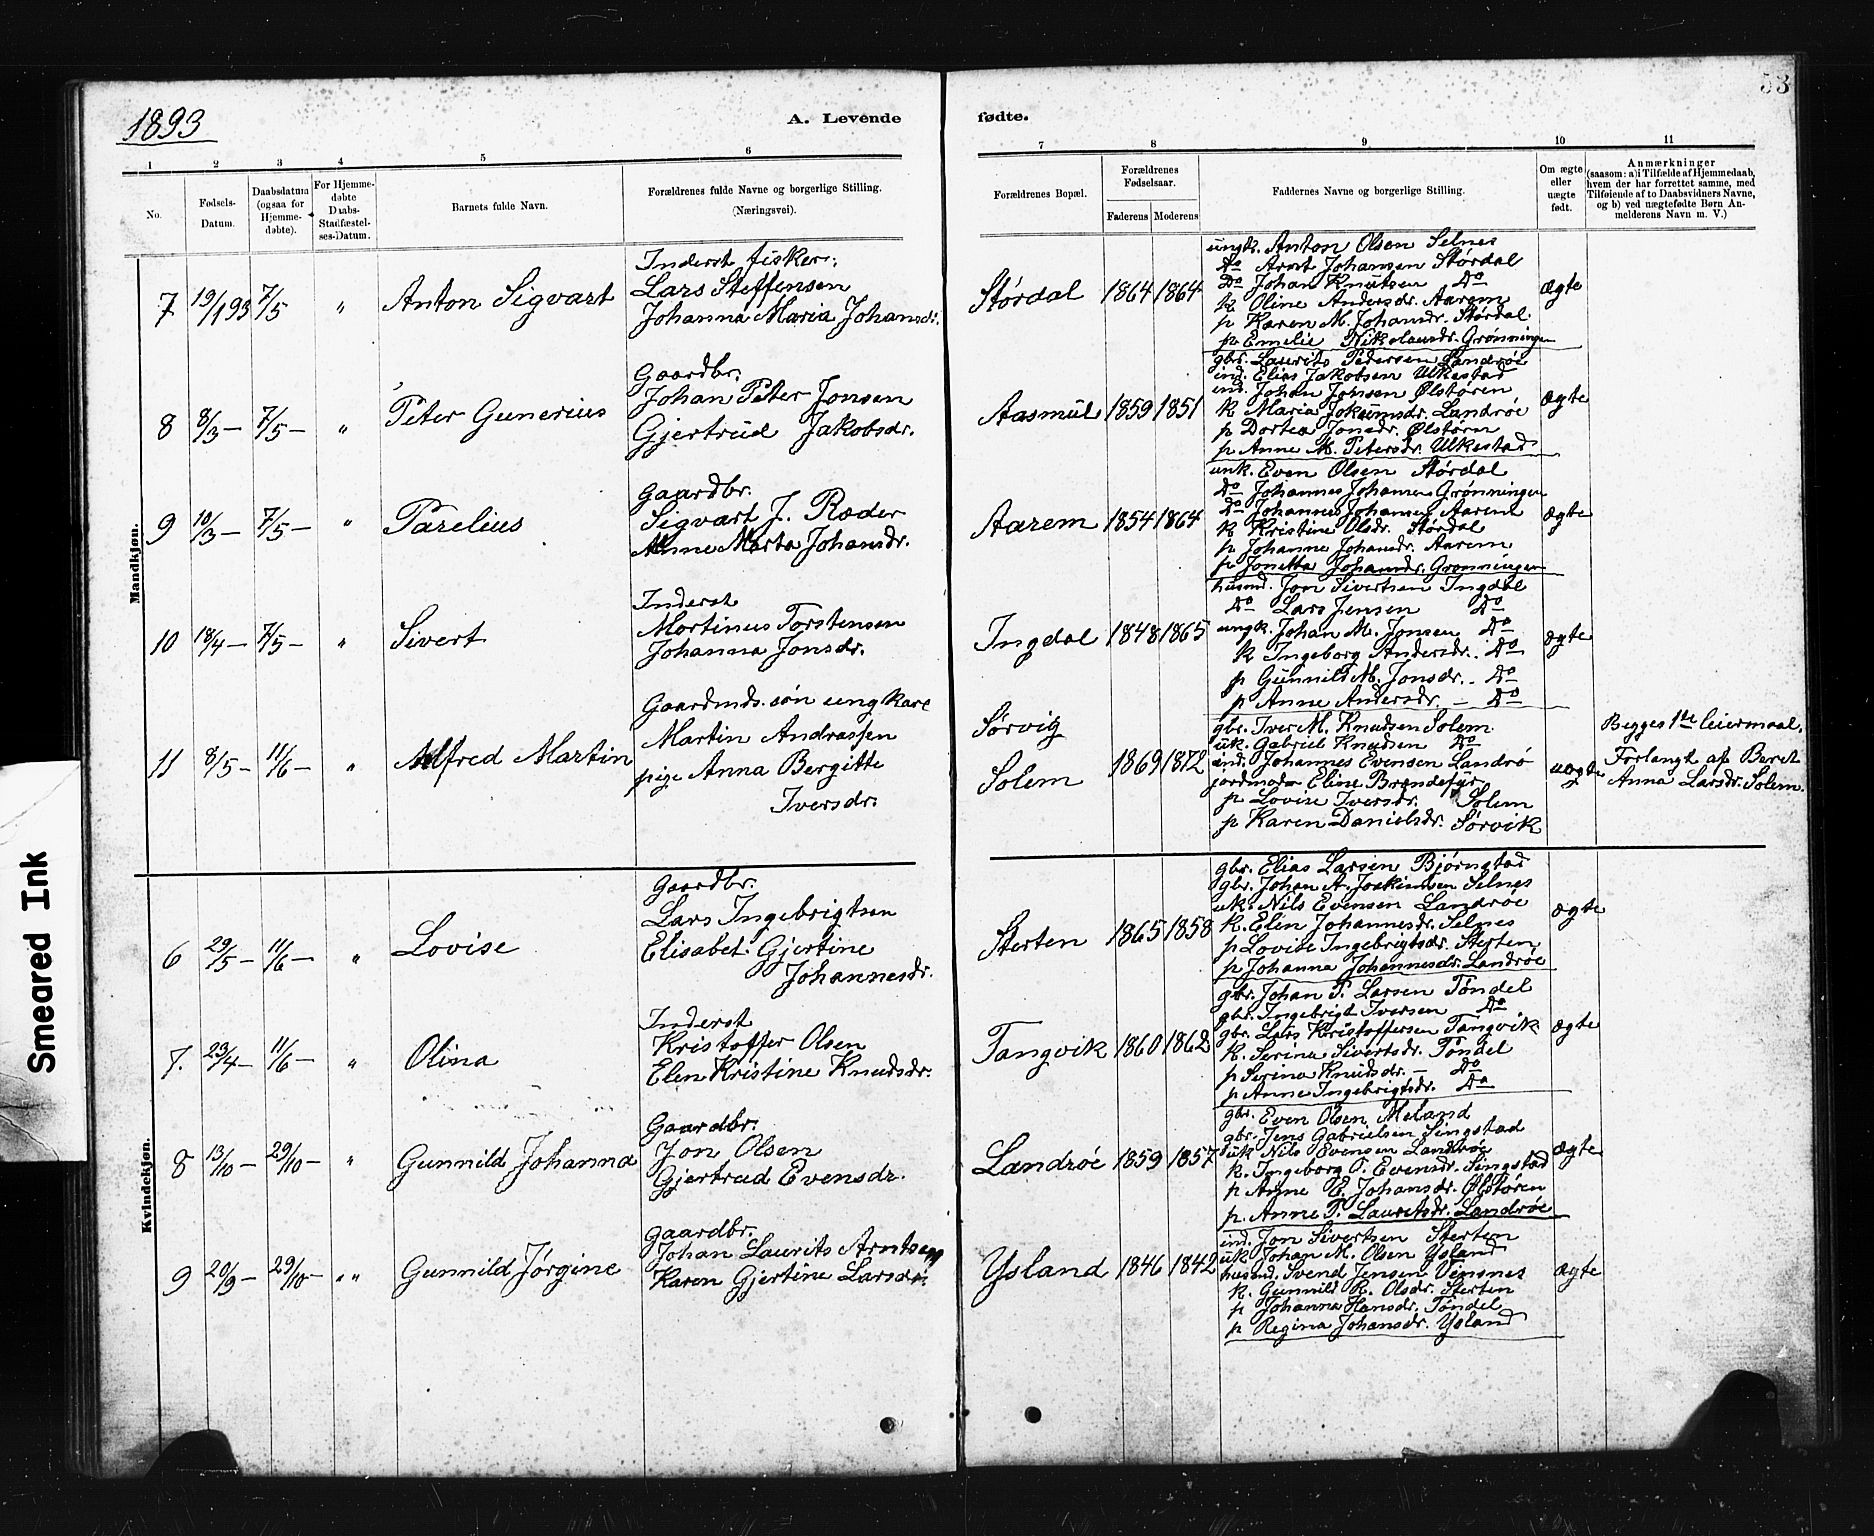 53
1893
A. Levende
fødte.
1 2 3 4 5 6
7 8 9 10 11
No.
Fødsels-
Datum.
Daabsdatum
(ogsaa for
Hjemme-
døbte).
For Hjemme-
døbte
Daabs-
Stadfæstel-
ses-Datum.
Barnets fulde Navn.
Forældrenes fulde Navne og borgerlige Stilling.
(Næringsvei).
Forældrenes Bopæl.
Forældrenes
Fødselsaar.
Faderens Moderens
Faddernes Navne og borgerlige Stilling.
Om ægte
eller
uægte
født.
Anmærkninger
(saasom: a) i Tilfælde af Hjemmedaab,
hvem der har forrettet samme, med
Tilføiende af to Daabsvidners Navne,
og b) ved uægtefødte Børn An-
melderens Navn m. V.)
Mandkjøn.
7 19/1 93 7/5 " Anton Sigvart
Inderst fisker:
Lars Steffensen
Johanna Maria Johansdr.
Størdal 1864 1864
ungk. Anton Olsen Selnes
Do Arnt Johansen Størdal
Do Johan Knutsen Do
k Oline Andersdr. Aarem
p Karen M. Johansdr. Størdal
p Emelie Nikolausdr. Grønningen
ægte
8 8/3 – 7/5 – " Peter Gunerius
Gaardbr.
Johan Peter Jonsen
Gjertrud Jakobsdr.
Aasmul 1859 1851
gbr. Laurits Pedersen Landrøe
ind. Elias Jakobsen Ulkestad
ind. Johan Jonsen Ølstøren
k Maria Jokumsdr. Landrøe
p Dortea Jonsdr. Ølstørn
p Anne M. Petersdr. Ulkestad
ægte
9 10/3 – 7/5 – " Parelius
Gaardbr.
Sigvart J. Røder
Anne Marta Johansdr.
Aarem 1854 1864
unk. Even Olsen Størdal
Do Johannes Johanses Grønningen
Do Johannes Johansen Aarem
k Kristine Olsdr. Størdal
p Johanne Johansdr. Aarem
p Jonetta Johansdr. Grønningen
ægte
10 18/4 – 7/5 – " Sivert
Inderst
Martinus Torstensen
Johanna Jonsdr.
Ingdal 1848 1865
husmd. Jon Sivertsen Ingdal
Do Lars Jensen Do
ungk. Johan M. Jonsen Do
k Ingeborg Andersdr. Do
p Gunnild M. Jonsdr. – Do
p Anne Andersdr. – Do
ægte
11 8/5 – 11/6 – " Alfred Martin
Gaardmds. søn ungkarl
Martin Andrassen
pige Anna Bergitte
Iversdr.
Sørvig
Solem
1869 1872
gbr. Iver M. Knudsen Solem
uk. Gabriel Knudsen Do
ind. Johannes Evensen Landrø
jordmoder Eline Brandsfyr
p Lovise Iversdr. Solem
p Karen Danielsdr. Sørvik
uægte
Begges 1ste leiermaal.
Forlangt af Beret
Anna Larsdr. Solem.
Kvindekjøn.
6 29/5 – 11/6 – " Lovise
Gaardbr.
Lars Ingebrigtsen
Elisabet Gjertine
Johannesdr.
Sterten 1865 1858
gbr. Elias Larsen Bjørngtad
gbr. Johan A. Joakimsen Selnes
uk. Nils Evensen Landrøe
k. Elen Johannesdr. Selnes
p Lovise Ingebrigtsdr. Sterten
p Johanna Johannesdr. Landrøe
ægte
7. 23/4 – 11/6 – " Olina
Inderst
Kristoffer Olsen
Elen Kristine Knudsdr.
Tangvik 1860 1862
gbr. Johan P. Larsen Tøndel
gbr. Ingebrigt Iversen Do
gbr. Lars Kristoffersen Tangvik
k. Serina Sivertsdr. Tøndel
p Serina Knudsdr. – Do
p Anne Ingebrigtsdr. Do
ægte
8 13/10 – 29/10 – " Gunnild Johanna
Gaardbr.
Jon Olsen
Gjertrud Evensdr.
Landrøe 1859 1857
gbr. Even Olsen Meland
gbr. Jens Gabrielsen Singstad
uk Nils Evensen Landrøe
k. Ingeborg P. Evensdr. Singstad
p Anne E. Johansdr. Ølstøren
p. Anne P. Lauritsdr. Landrøe
ægte
9 20/9 – 29/10 – " " Gunnild Jørgine
Gaardbr.
Johan Laurits Arntsen
Karen Gjertine Larsdr.
Ysland 1846 1842
ind. Jon Sivertsen Sterten
uk Johan M. Olsen Ysland
husmd. Svend Jensen Vensnes
k. Gunnild K. Olsdr. Sterten
p Johanna Hansdr. Tøndel
p Regina Johansdr. Ysland
ægte
Smeared Ink